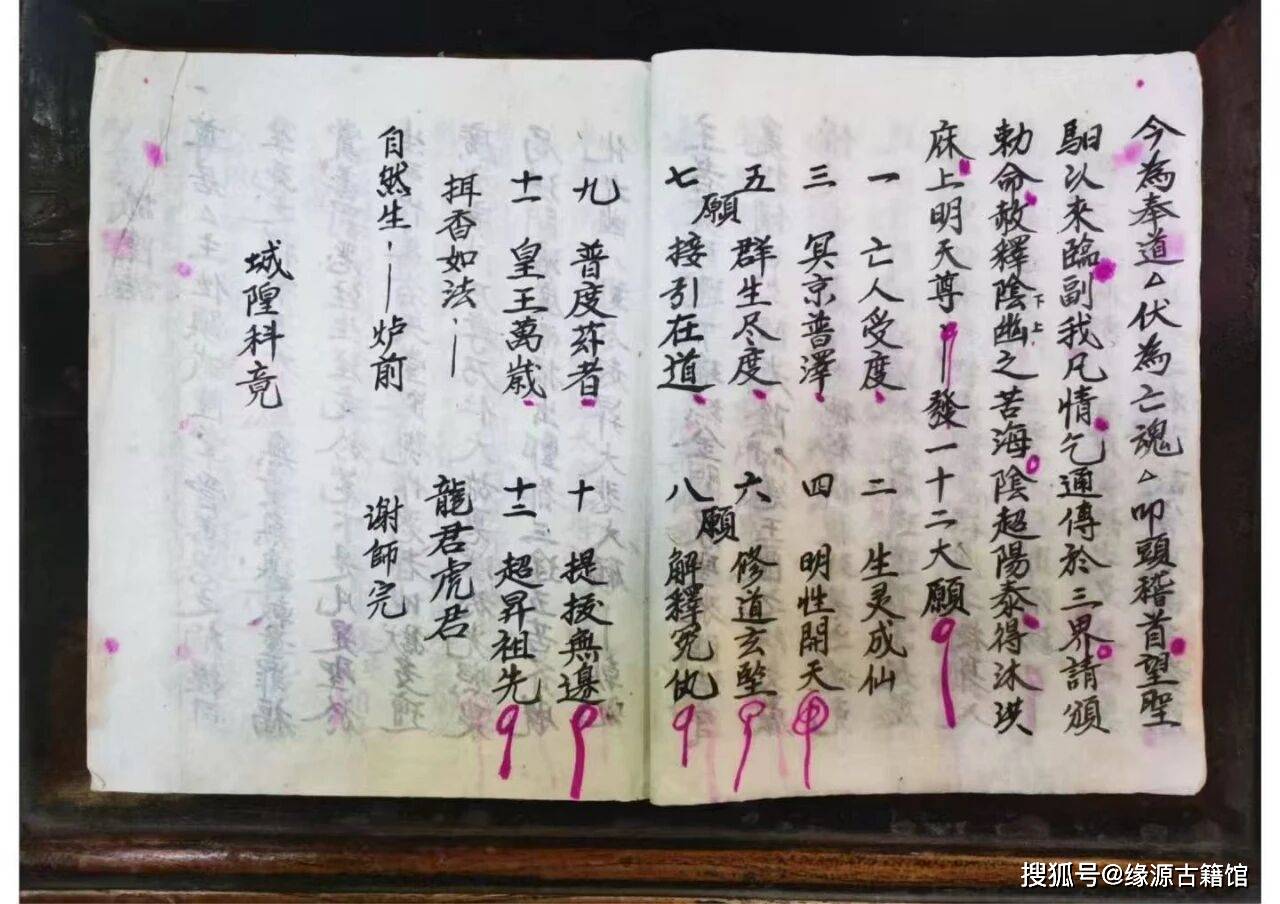 今為奉道△伏為亡魂△叩頭稽首望聖
駟以來臨副我凡情乞通傳於三界請頒
勅命赦釋陰幽之苦海陰超陽泰得沐洪
下上
庥上明天尊 發一十二大願
一 亡人受度 二 生灵成仙
三 冥京普澤 四 明性開天
五 群生尽度 六 修道玄堅
七願 接引在道 八願 解釋冤仇
九 普度茲者 十 提拔無邊
十一 皇王萬歲 十二 超昇祖先
揖香如法 龍君虎君
自然生 炉前 谢師完
城隍科竟
搜狐号@缘源古籍馆